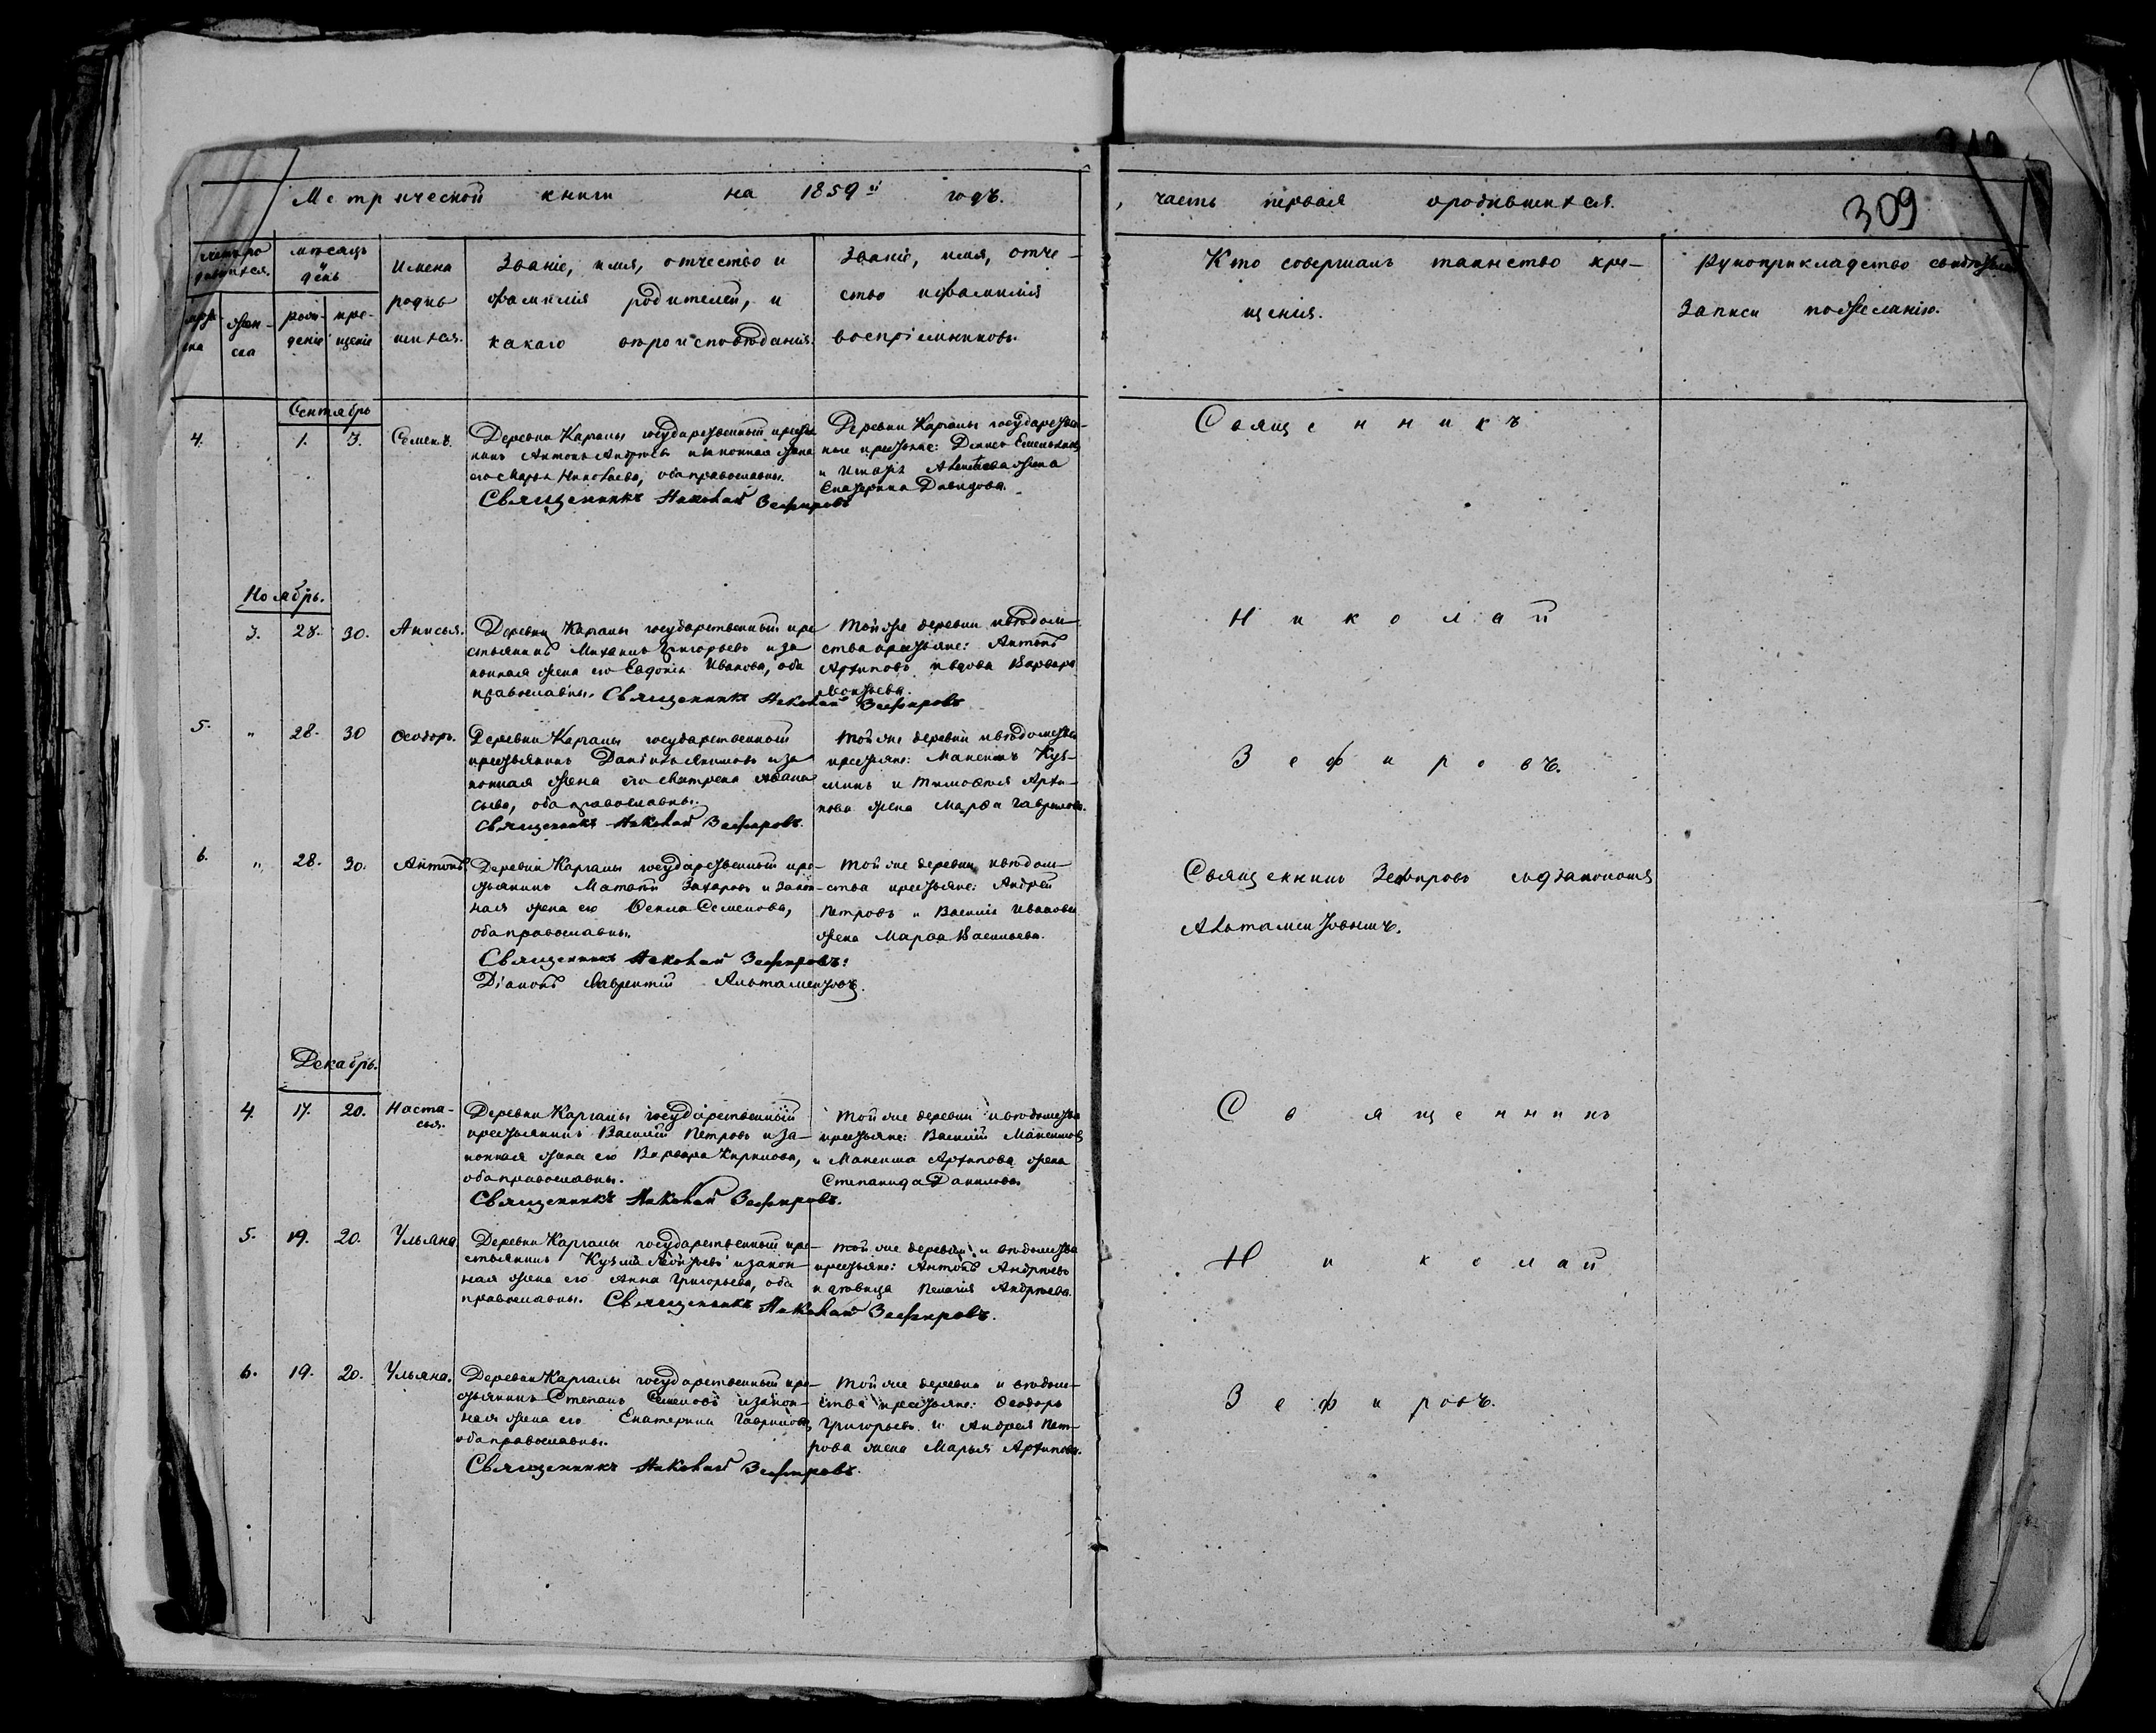 Метрической книги на 1859й годъ.
часть первая о родившихся.
309
Счетъ родившихся.
мѣсяцъ и день
Имена родившихся.
Званіе, имя, отчество и
фамилія родителей, и
какаго вѣроисповѣданія.
Званіе, имя, отче-
ство и фамилія
воспріемниковъ.
Кто совершалъ таинство кре-
щенія.
Рукоприкладство свидѣтелей
записи по желанію.
муже-
ска
жен-
ска
рож-
деніе
кре-
щеніе
Сентябрь
4. 1. 3. Семенъ.
Деревни Карганы государственный кресть
нинъ Антонъ Андреевъ и законная жена
его Марья Николаева, оба православны.
Священникъ Николай Зефировъ
Деревни Карганы государствен-
ные крестьяне:
жена
Екатерина Давидова.
Священникъ
Ноябрь.
3. 28. 30. Анисья.
Деревни Карганы государственный кре
стьянинъ Михаилъ Григорьевъ и за
конная жена его Евдокія Иванова, оба
православны. Священникъ Николай Зефировъ
Той же деревни и вѣдом-
ства крестьяне: Антонъ
Архиповъ и вдова Варвара
Леонтьева.
Николай
5. " 28. 30 Ѳеодоръ.
Деревни Карганы государственный
крестьянинъ Данилъ и за
конная жена его Матрена Аѳана
сьева, оба православны.
Священникъ Николай Зефировъ.
Той же деревни и вѣдомства
крестьяне: Максимъ Кузь-
минъ и Тимоѳея Архи-
пова жена Марѳа Гаврилова.
Зефировъ.
6. " 28. 30. Антонъ.
Деревни Карганы государственный кре-
стьянинъ Матвѣй Захаровъ и закон-
ная жена его Ѳекла Семенова,
оба православны.
Священникъ Николай Зефировъ:
Діаконъ Лаврентій Альтаментовъ.
Той же деревни и вѣдом-
ства крестьяне: Андрей
Петровъ и Василія Иванова
жена Марѳа Васильева.
Священникъ Зефировъ съ діакономъ
Альтаментовымъ.
Декабрь.
4. 17. 20. Наста-
сья.
Деревни Карганы государственный
крестьянинъ Василій Петровъ и за-
конная жена его Варвара Кирилова,
оба православны.
Священникъ Николай Зефировъ.
Той же деревни и вѣдомства
крестьяне: Василій Максимовъ
и Максима Архипова жена
Степанида Данилова
Священникъ
5. 19. 20. Ульяна
Деревни Карганы государственный кре-
стьянинъ Кузьма Леонтьевъ и закон-
ная жена его Анна Григорьева, оба
православны. Священникъ Николай Зефировъ.
Той же деревни и вѣдомства
крестьяне: Антонъ Андреевъ
и дѣвица Пелагія Андреева.
Николай
6. 19. 20. Ульяна.
Деревни Карганы государственный кре-
стьянинъ Степанъ Семеновъ и закон-
ная жена его Екатерина Гаврилова
оба православны.
Священникъ Николай Зефировъ.
Той же деревни и вѣдом-
ства крестьяне: Ѳеодоръ
Григорьевъ и Андрея Пет-
рова жена Марья Архипова.
Зефировъ.